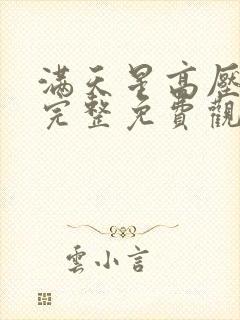 滿天星高壓
完整免費觀
雲小言